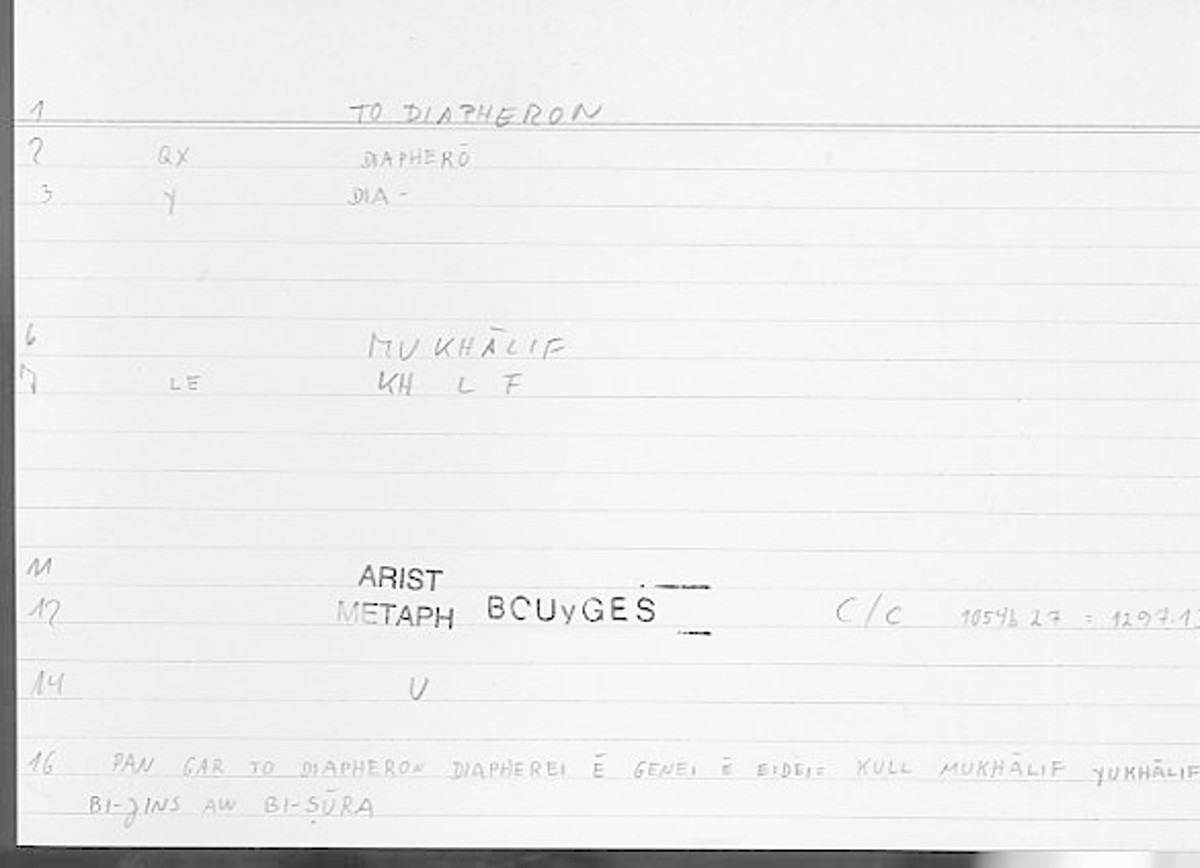 1 TO DIAPHERON
2 QX DIAPHERŌ
3 Y DIA-
6 MUKHĀLIF
7 LE KH L F
11 ARIST
12 METAPH BOUyGES C/C 1054b 27 = 1297.13
14 U
16 PAN GAR TO DIAPHERON DIAPHEREI Ē GENEI Ē EIDEI= KULL MUKHĀLIF YUKHĀLIF
BI-JINS AW BI-ṢŪRA